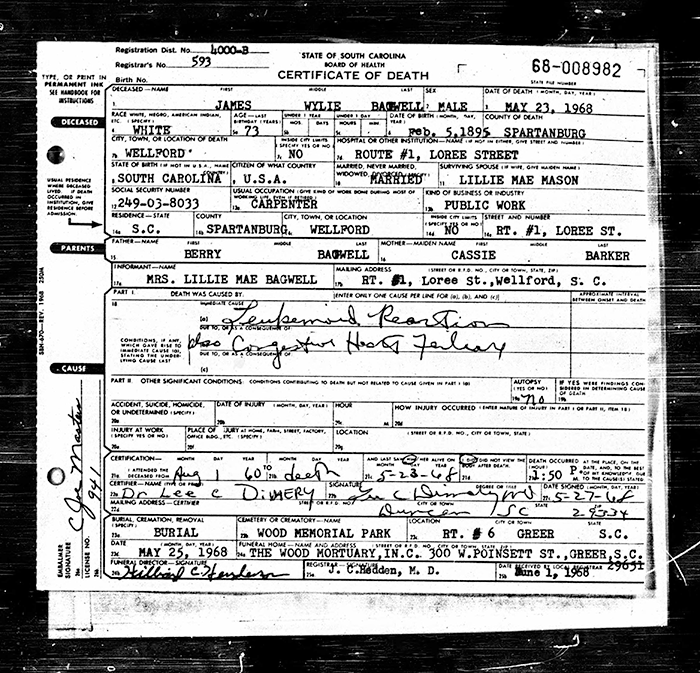 Registration Dist. No. 4000-B
Registrar's No. 593
Birth No.
STATE OF SOUTH CAROLINA
BOARD OF HEALTH
CERTIFICATE OF DEATH
68-008982
STATE FILE NUMBER
TYPE, OR PRINT IN
PERMANENT INK
SEE HANDBOOK FOR
INSTRUCTIONS
DECEASED—NAME FIRST MIDDLE LAST SEX DATE OF DEATH (MONTH, DAY, YEAR)
1. JAMES WYLIE BAGWELL 2. MALE 3. MAY 23, 1968
DECEASED
RACE WHITE, NEGRO, AMERICAN INDIAN, ETC. (SPECIFY) AGE—LAST BIRTHDAY (YEARS) UNDER 1 YEAR MOS. DAYS UNDER 1 DAY HOURS MIN. DATE OF BIRTH (MONTH, DAY, YEAR) COUNTY OF DEATH
4. WHITE 5a 73 5b 5c 6. Feb. 5, 1895 SPARTANBURG
CITY, TOWN, OR LOCATION OF DEATH INSIDE CITY LIMITS (SPECIFY YES OR NO) HOSPITAL OR OTHER INSTITUTION—NAME (IF NOT IN EITHER, GIVE STREET AND NUMBER)
7b WELLFORD 7c NO 7d ROUTE #1, LOREE STREET
STATE OF BIRTH (IF NOT IN U.S.A., NAME COUNTRY) CITIZEN OF WHAT COUNTRY MARRIED, NEVER MARRIED, WIDOWED, DIVORCED (SPECIFY) SURVIVING SPOUSE (IF WIFE, GIVE MAIDEN NAME)
SOUTH CAROLINA U.S.A. MARRIED 11 LILLIE MAE MASON
USUAL RESIDENCE
WHERE DECEASED
LIVED. IF DEATH
OCCURRED IN
INSTITUTION, GIVE
RESIDENCE BEFORE
ADMISSION.
SOCIAL SECURITY NUMBER USUAL OCCUPATION (GIVE KIND OF WORK DONE DURING MOST OF WORKING LIFE, EVEN IF RETIRED) KIND OF BUSINESS OR INDUSTRY
12 249-03-8033 13a CARPENTER 13b PUBLIC WORK
RESIDENCE—STATE COUNTY CITY, TOWN, OR LOCATION INSIDE CITY LIMITS (SPECIFY YES OR NO) STREET AND NUMBER
14a S.C. SPARTANBURG WELLFORD 14d NO 14e RT. #1, LOREE ST.
PARENTS
FATHER—NAME FIRST MIDDLE LAST MOTHER—MAIDEN NAME FIRST MIDDLE LAST
15 BERRY BAGWELL CASSIE BARKER
INFORMANT—NAME MAILING ADDRESS (STREET OR R.F.D. NO., CITY OR TOWN, STATE, ZIP)
17a MRS. LILLIE MAE BAGWELL 17b RT. #1, Loree St., Wellford, S. C.
SBH-670—REV. 1968 250M
PART I. DEATH WAS CAUSED BY: [ENTER ONLY ONE CAUSE PER LINE FOR (a), (b), AND (c)] APPROXIMATE INTERVAL BETWEEN ONSET AND DEATH
18 IMMEDIATE CAUSE
(a) Leukemoid Reaction
DUE TO, OR AS A CONSEQUENCE OF
CONDITIONS, IF ANY,
WHICH GAVE RISE TO
IMMEDIATE CAUSE (a),
STATING THE UNDER-
LYING CAUSE LAST
also Congestive Heart Failure
DUE TO, OR AS A CONSEQUENCE OF
(c)
CAUSE
PART II. OTHER SIGNIFICANT CONDITIONS: CONDITIONS CONTRIBUTING TO DEATH BUT NOT RELATED TO CAUSE GIVEN IN PART I (a) AUTOPSY (YES OR NO) IF YES WERE FINDINGS CONSIDERED IN DETERMINING CAUSE OF DEATH
19a no 19b
ACCIDENT, SUICIDE, HOMICIDE, OR UNDETERMINED (SPECIFY) DATE OF INJURY (MONTH, DAY, YEAR) HOUR HOW INJURY OCCURRED (ENTER NATURE OF INJURY IN PART I OR PART II, ITEM 18)
20a 20b 20c M. 20d
INJURY AT WORK (SPECIFY YES OR NO) PLACE OF INJURY AT HOME, FARM, STREET, FACTORY, OFFICE BLDG., ETC. (SPECIFY) LOCATION (STREET OR R.F.D. NO., CITY OR TOWN, STATE)
20e 20f 20g
CERTIFICATION— MONTH DAY YEAR MONTH DAY YEAR AND LAST SAW HIM/HER ALIVE ON MONTH DAY YEAR I DID/DID NOT VIEW THE BODY AFTER DEATH. DEATH OCCURRED (HOUR) AT THE PLACE, ON THE DATE, AND, TO THE BEST OF MY KNOWLEDGE DUE TO THE CAUSE(S) STATED
21a I ATTENDED THE DECEASED FROM Aug 1 60 TO death 5-23-68 1:50 P
CERTIFIER—NAME (TYPE OR PRINT) SIGNATURE DEGREE OR TITLE DATE SIGNED (MONTH, DAY, YEAR)
Dr Lee C DIMERY 5-27-68
MAILING ADDRESS—CERTIFIER STREET OR R.F.D. NO. CITY OR TOWN STATE ZIP
Duncan SC 29334
BURIAL, CREMATION, REMOVAL (SPECIFY) CEMETERY OR CREMATORY—NAME LOCATION CITY OR TOWN STATE
BURIAL WOOD MEMORIAL PARK RT. #6 GREER S.C.
DATE (MONTH, DAY, YEAR) FUNERAL HOME—NAME AND ADDRESS (STREET OR R.F.D. NO., CITY OR TOWN, STATE, ZIP)
MAY 25, 1968 THE WOOD MORTUARY, IN.C. 300 W.POINSETT ST., GREER, S.C. 29651
FUNERAL DIRECTOR—SIGNATURE REGISTRAR—SIGNATURE DATE RECEIVED BY LOCAL REGISTRAR
J. C. Hedden, M. D. June 1, 1968
EMBALMER
SIGNATURE C Joe Marter
LICENSE NO. 941